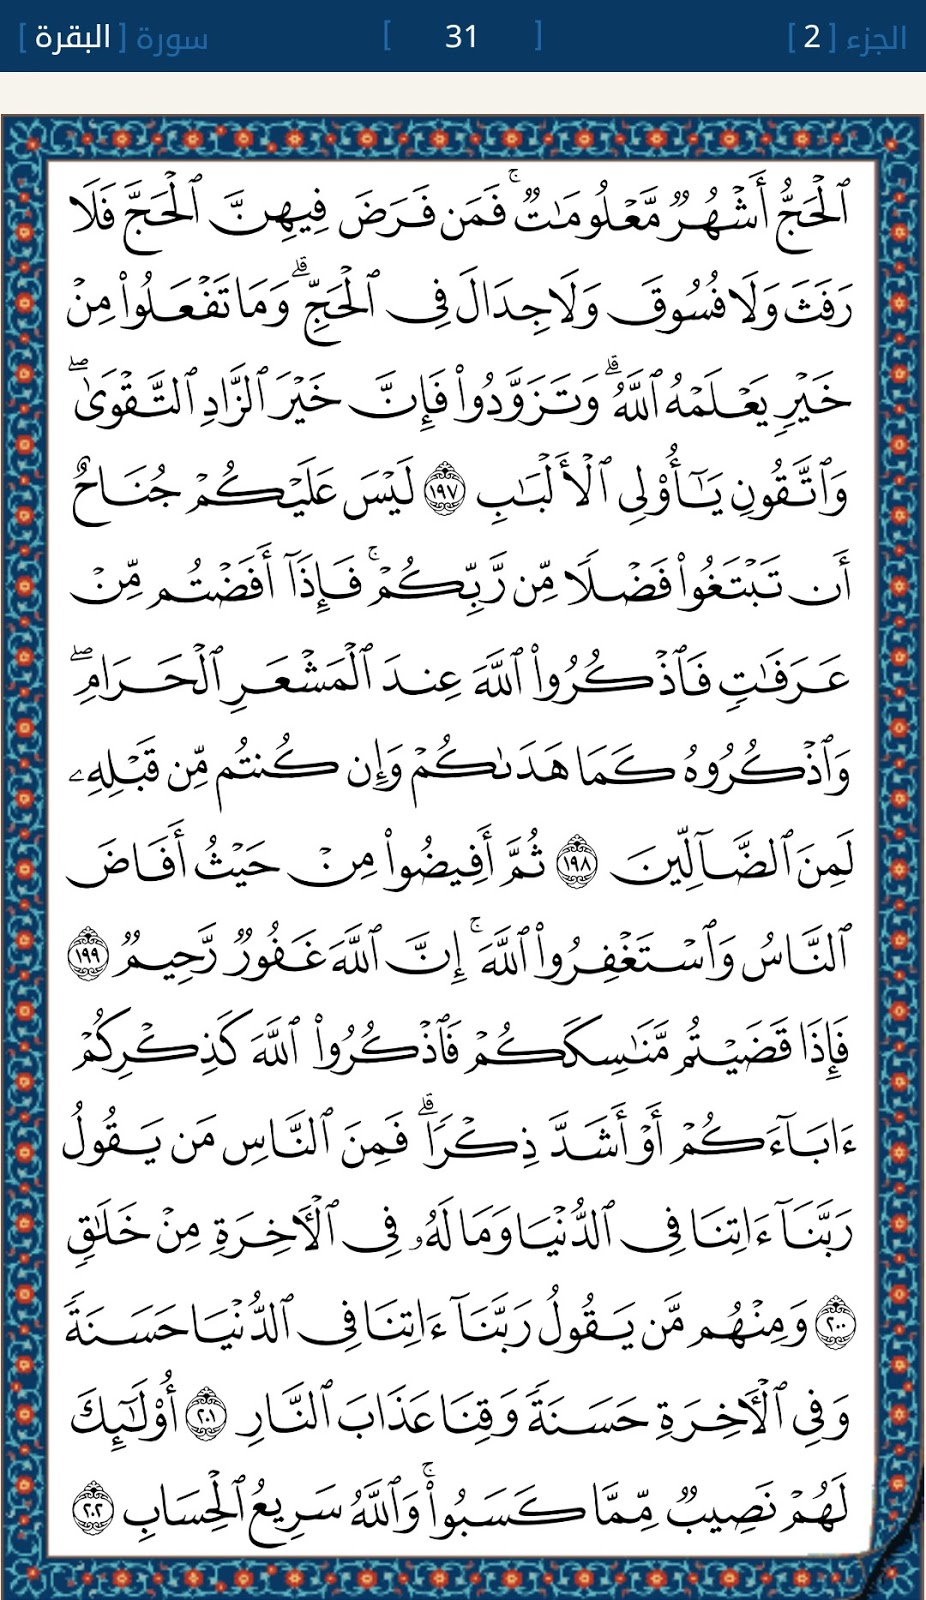 الجزء [ 2 ] [ 31 ] سورة [ البقرة ]
ٱلْحَجُّ أَشْهُرٌ مَّعْلُومَـٰتٌ ۚ فَمَن فَرَضَ فِيهِنَّ ٱلْحَجَّ فَلَا
رَفَثَ وَلَا فُسُوقَ وَلَا جِدَالَ فِى ٱلْحَجِّ ۗ وَمَا تَفْعَلُوا۟ مِنْ
خَيْرٍ يَعْلَمْهُ ٱللَّهُ ۗ وَتَزَوَّدُوا۟ فَإِنَّ خَيْرَ ٱلزَّادِ ٱلتَّقْوَىٰ ۖ
وَٱتَّقُونِ يَـٰٓأُو۟لِى ٱلْأَلْبَـٰبِ ١٩٧ لَيْسَ عَلَيْكُمْ جُنَاحٌ
أَن تَبْتَغُوا۟ فَضْلًا مِّن رَّبِّكُمْ ۚ فَإِذَآ أَفَضْتُم مِّنْ
عَرَفَـٰتٍ فَٱذْكُرُوا۟ ٱللَّهَ عِندَ ٱلْمَشْعَرِ ٱلْحَرَامِ ۖ
وَٱذْكُرُوهُ كَمَا هَدَىٰكُمْ وَإِن كُنتُم مِّن قَبْلِهِۦ
لَمِنَ ٱلضَّآلِّينَ ١٩٨ ثُمَّ أَفِيضُوا۟ مِنْ حَيْثُ أَفَاضَ
ٱلنَّاسُ وَٱسْتَغْفِرُوا۟ ٱللَّهَ ۚ إِنَّ ٱللَّهَ غَفُورٌ رَّحِيمٌ ١٩٩
فَإِذَا قَضَيْتُم مَّنَـٰسِكَكُمْ فَٱذْكُرُوا۟ ٱللَّهَ كَذِكْرِكُمْ
ءَابَآءَكُمْ أَوْ أَشَدَّ ذِكْرًا ۗ فَمِنَ ٱلنَّاسِ مَن يَقُولُ
رَبَّنَآ ءَاتِنَا فِى ٱلدُّنْيَا وَمَا لَهُۥ فِى ٱلْـَٔاخِرَةِ مِنْ خَلَـٰقٍ
٢٠٠ وَمِنْهُم مَّن يَقُولُ رَبَّنَآ ءَاتِنَا فِى ٱلدُّنْيَا حَسَنَةً
وَفِى ٱلْـَٔاخِرَةِ حَسَنَةً وَقِنَا عَذَابَ ٱلنَّارِ ٢٠١ أُو۟لَـٰٓئِكَ
لَهُمْ نَصِيبٌ مِّمَّا كَسَبُوا۟ ۚ وَٱللَّهُ سَرِيعُ ٱلْحِسَابِ ٢٠٢